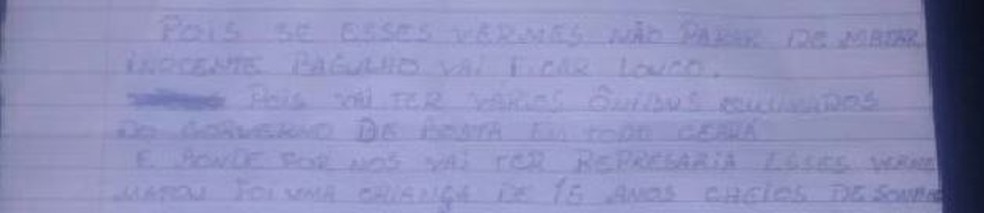 POIS SE ESSES VERMES NÃO PARAR DE MATAR
INOCENTE BAGULHO VAI FICAR LOUCO.
POIS VAI TER VÁRIOS ÔNIBUS QUEIMADOS
DO GORVERNO DE BOSTA EM TODO CEARÁ
E AONDE FOR NOS VAI TER REPRESARIA ESSES VERME
MATOU FOI UMA CRIANÇA DE 15 ANOS CHEIOS DE SONHO